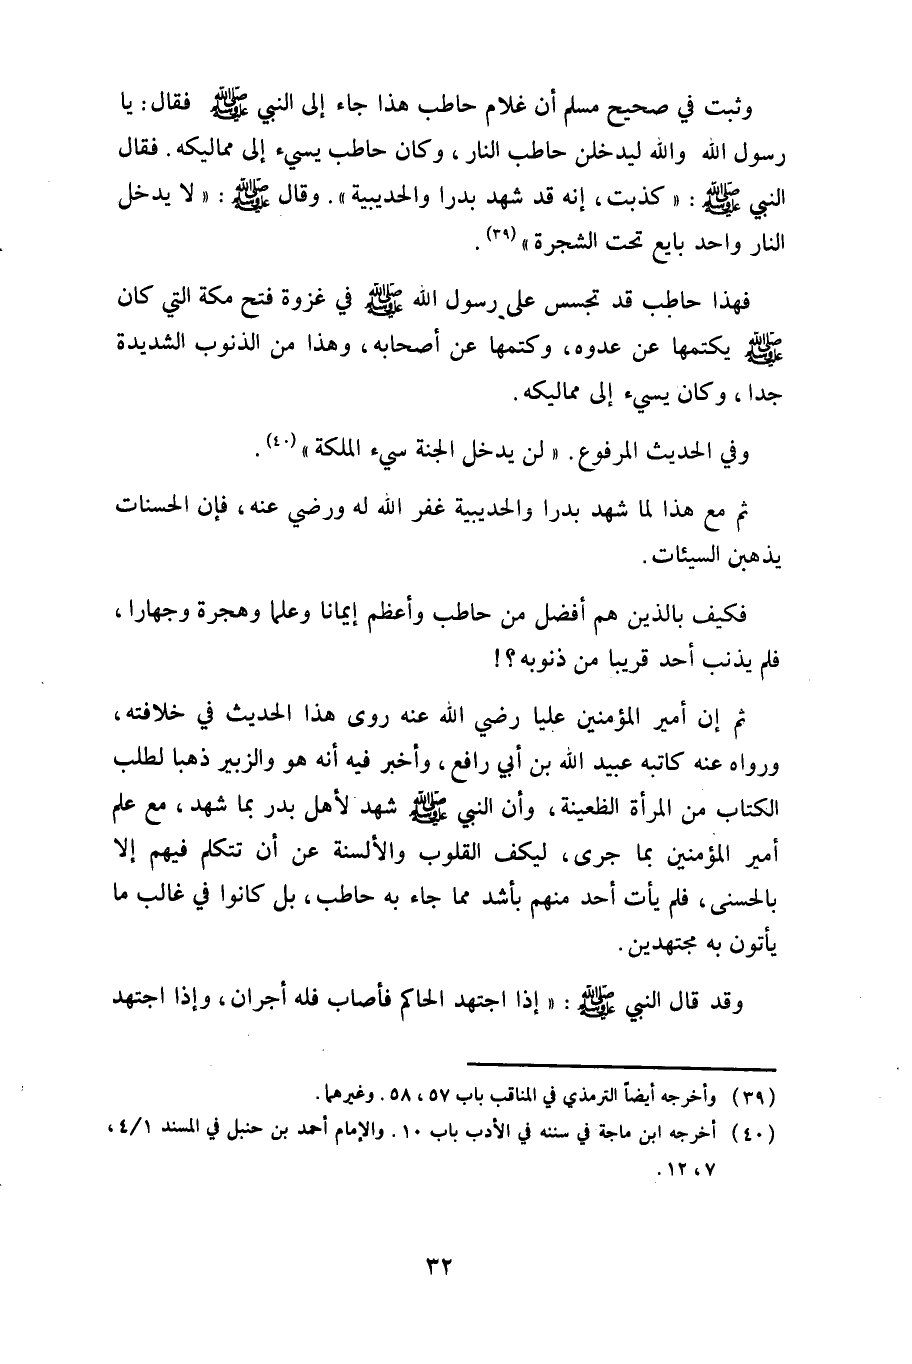 وثبت في صحيح مسلم أن غلام حاطب هذا جاء إلى النبي ﷺ فقال: يا
رسول الله والله ليدخلن حاطب النار ، وكان حاطب يسيء إلى مماليكه . فقال
النبي ﷺ : « كذبت ، إنه قد شهد بدرا والحديبية » . وقال ﷺ : « لا يدخل
النار واحد بايع تحت الشجرة » (٣٩) .
فهذا حاطب قد تجسس على رسول الله ﷺ في غزوة فتح مكة التي كان
ﷺ يكتمها عن عدوه، وكتمها عن أصحابه ، وهذا من الذنوب الشديدة
جدا ، وكان يسيء إلى مماليكه .
وفي الحديث المرفوع . « لن يدخل الجنة سيء الملكة » (٤٠) .
ثم مع هذا لما شهد بدرا والحديبية غفر الله له ورضي عنه ، فإن الحسنات
يذهبن السيئات .
فكيف بالذين هم أفضل من حاطب وأعظم إيمانا وعلما وهجرة وجهارا ،
فلم يذنب أحد قريبا من ذنوبه ؟!
ثم إن أمير المؤمنين عليا رضي الله عنه روى هذا الحديث في خلافته ،
ورواه عنه كاتبه عبيد الله بن أبي رافع ، وأخبر فيه أنه هو والزبير ذهبا لطلب
الكتاب من المرأة الظعينة ، وأن النبي ﷺ شهد لأهل بدر بما شهد ، مع علم
أمير المؤمنين بما جرى ، ليكف القلوب والألسنة عن أن تتكلم فيهم إلا
بالحسنى ، فلم يأت أحد منهم بأشد مما جاء به حاطب ، بل كانوا في غالب ما
يأتون به مجتهدين .
وقد قال النبي ﷺ : « إذا اجتهد الحاكم فأصاب فله أجران ، وإذا اجتهد
(٣٩) وأخرجه أيضاً الترمذي في المناقب باب ٥٧ ، ٥٨ . وغيرهما .
(٤٠) أخرجه ابن ماجة في سننه في الأدب باب ١٠ . والإمام أحمد بن حنبل في المسند ٤/١ ،
٧ ، ١٢ .
٣٢